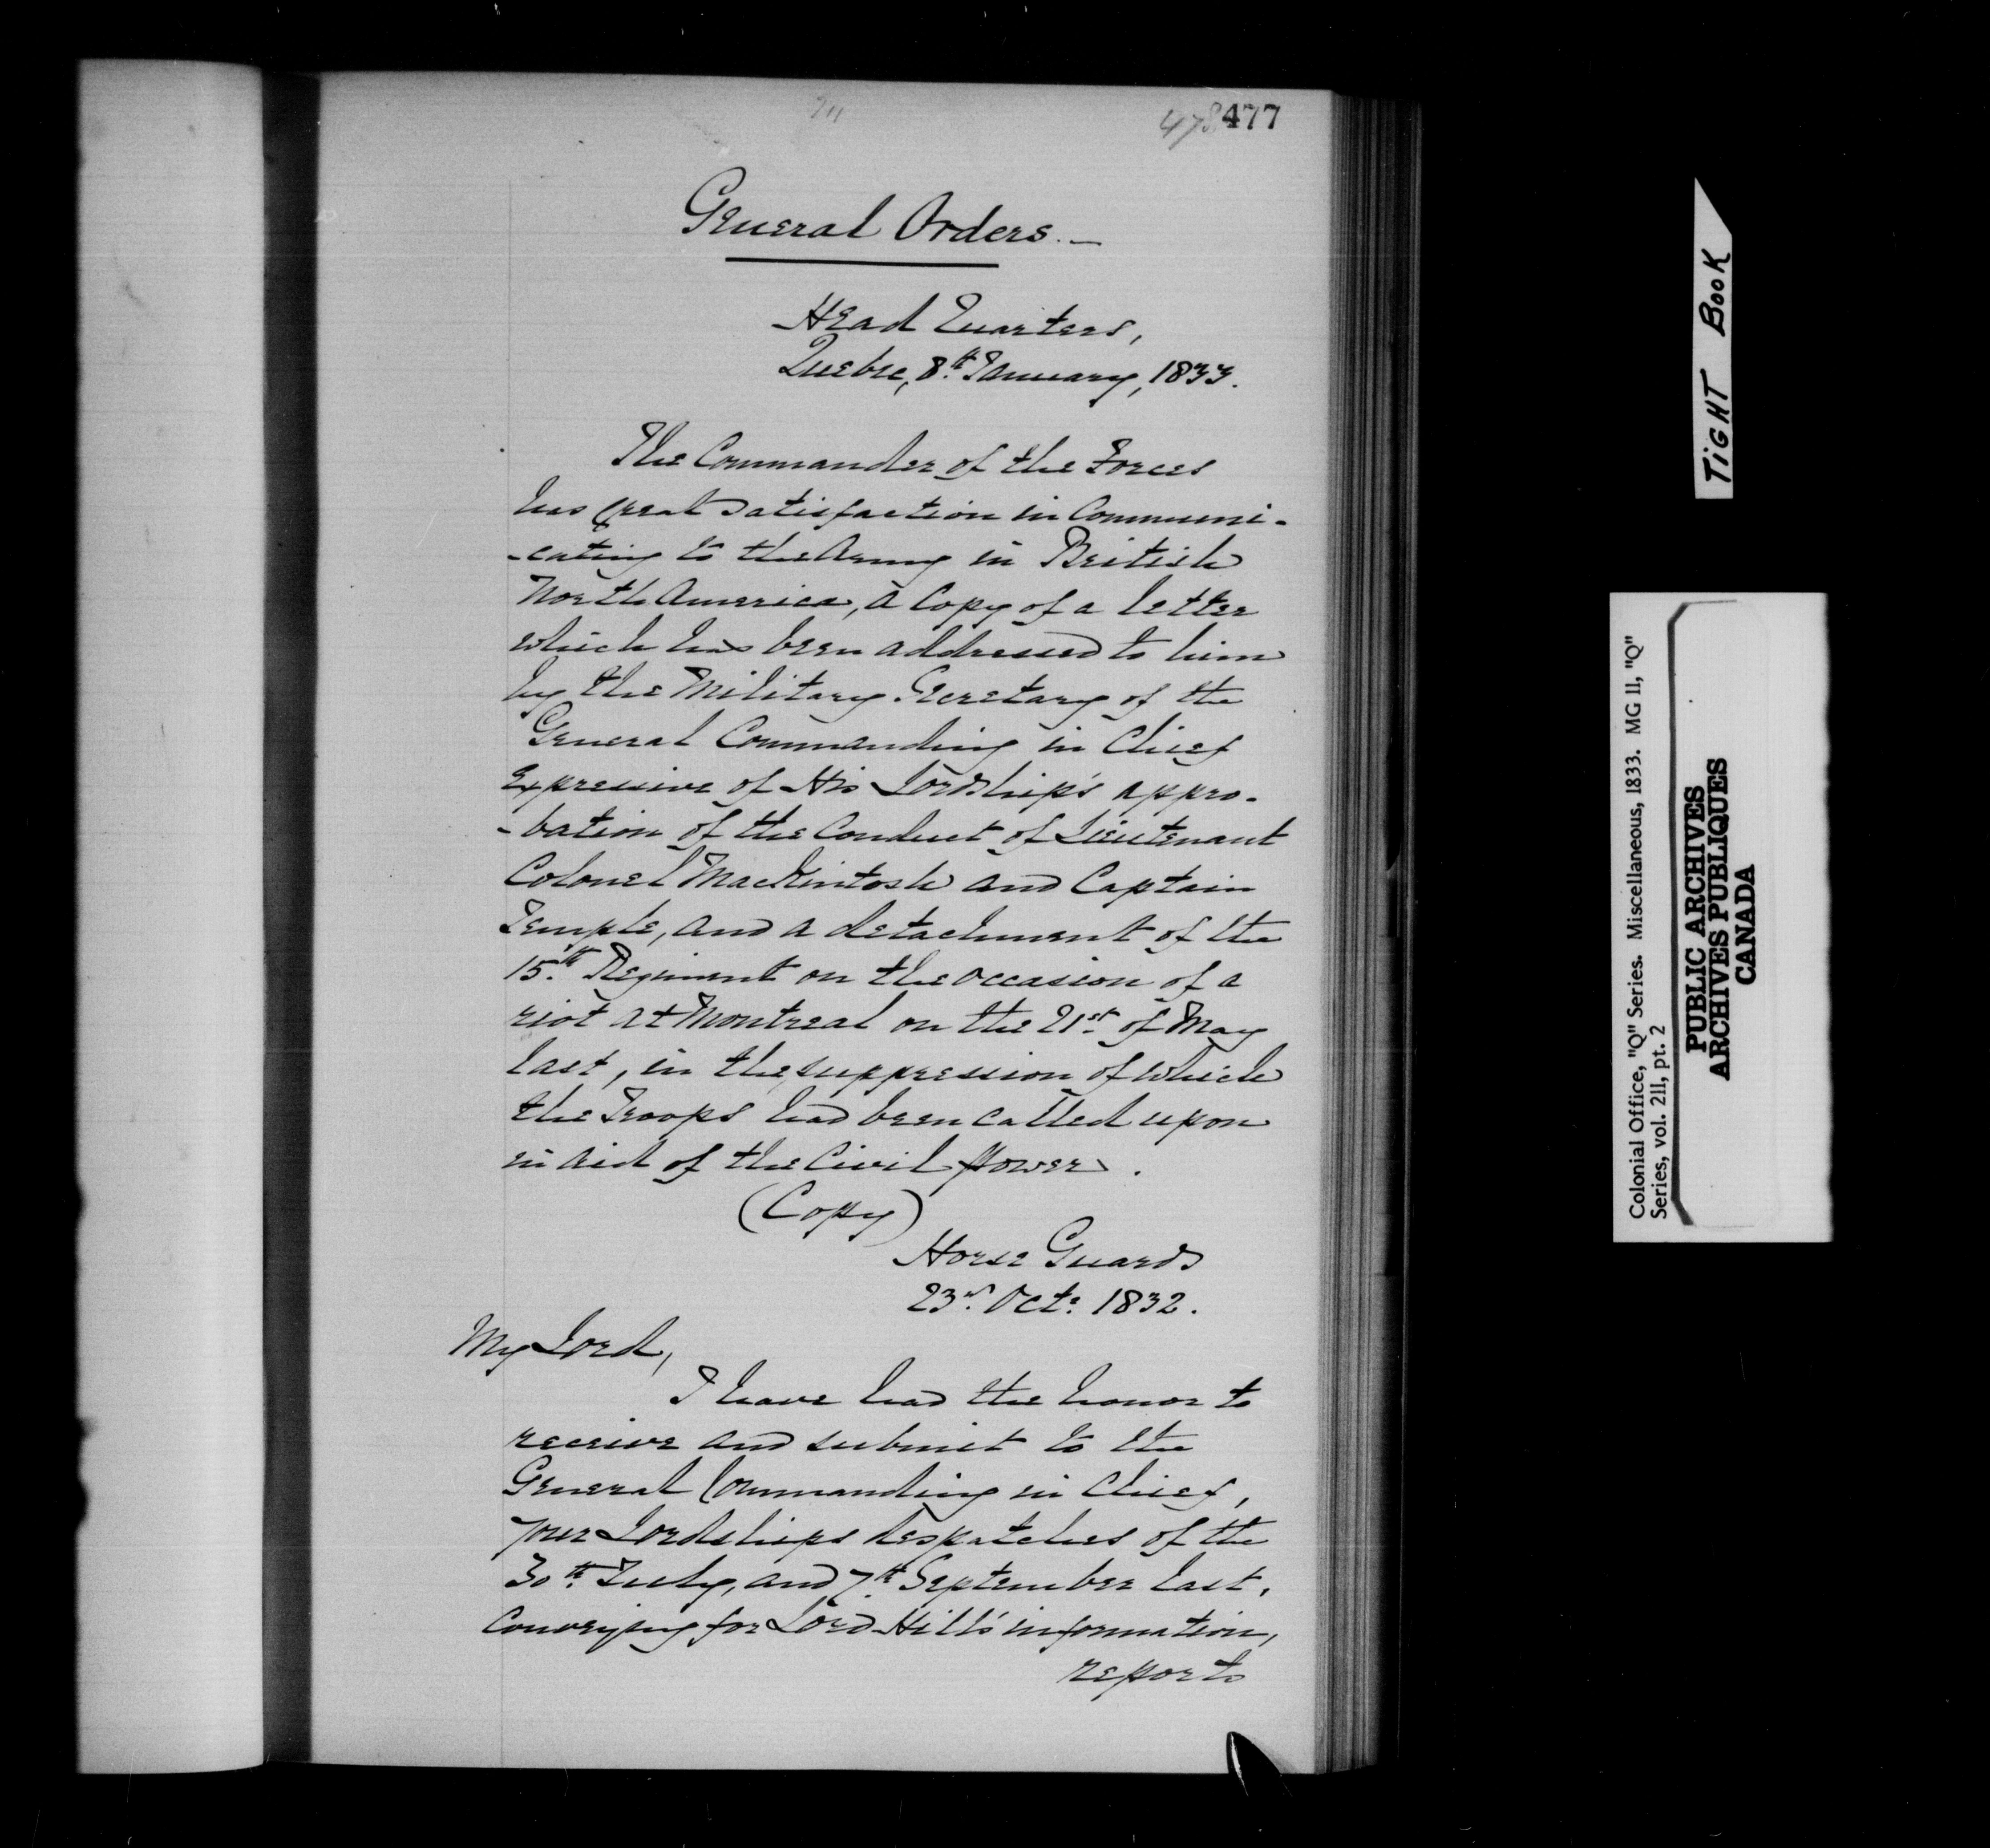 478 477
General Orders.—
Head Quarters,
Quebec, 8th January, 1833.
The Commander of the Forces
has great satisfaction in Communi-
-cating to the Army in British
North America, a Copy of a letter
which has been addressed to him
by the Military Secretary of the
General Commanding in Chief
expressive of His Lordship's appro-
-bation of the Conduct of Lieutenant
Colonel MacKintosh and Captain
Temple, and a detachment of the
15th Regiment on the occasion of a
riot at Montreal on the 21st of May
last, in the suppression of which
the Troops had been called upon
in aid of the Civil Power.
(Copy)
Horse Guards
23rd Octr 1832.
My Lord,
I have had the honor to
receive and submit to the
General Commanding in Chief,
your Lordships despatches of the
30th July, and 7th September last,
Conveying for Lord Hill's information,
reports
TIGHT BOOK
Colonial Office, "Q" Series. Miscellaneous, 1833. MG 11, "Q"
Series, vol. 211, pt. 2
PUBLIC ARCHIVES
ARCHIVES PUBLIQUES
CANADA